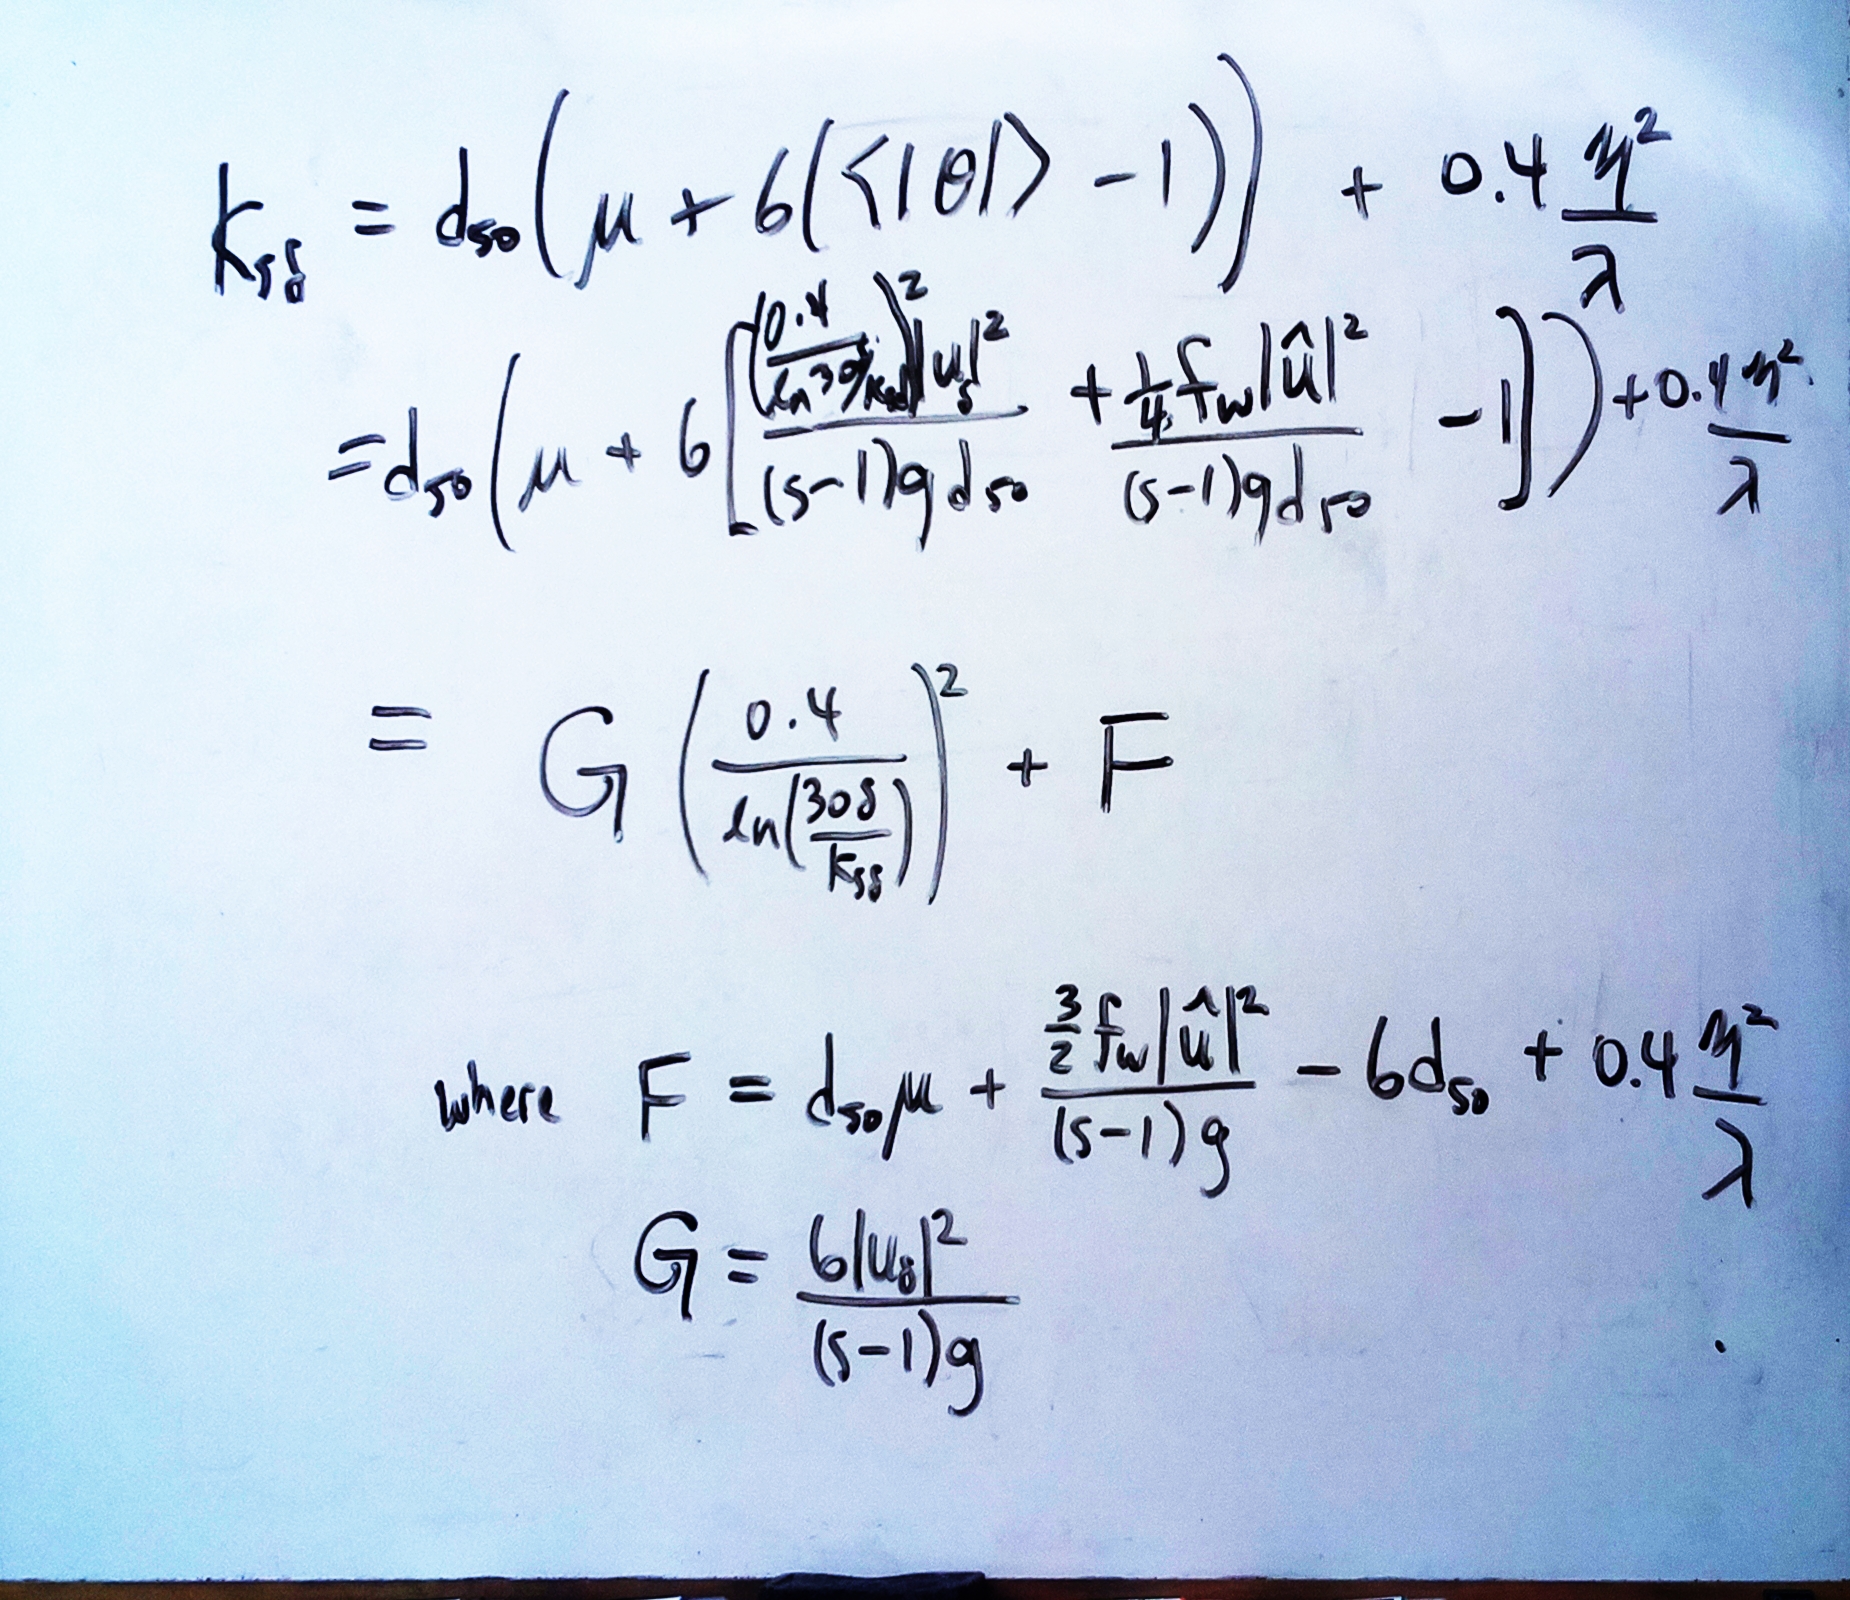 k_{sδ} = d_{50}(μ + 6(⟨|θ|⟩ - 1)) + 0.4 \frac{η^2}{λ}
= d_{50}(μ + 6[\frac{(\frac{0.4}{ln 30δ/k_{sδ}})^2 |u_δ|^2}{(s-1)g d_{50}} + \frac{\frac{1}{4} f_w |û|^2}{(s-1)g d_{50}} - 1]) + 0.4 \frac{η^2}{λ}
= G (\frac{0.4}{ln(\frac{30δ}{k_{sδ}})})^2 + F
where F = d_{50} μ + \frac{\frac{3}{2} f_w |û|^2}{(s-1)g} - 6d_{50} + 0.4 \frac{η^2}{λ}
G = \frac{6|u_δ|^2}{(s-1)g}